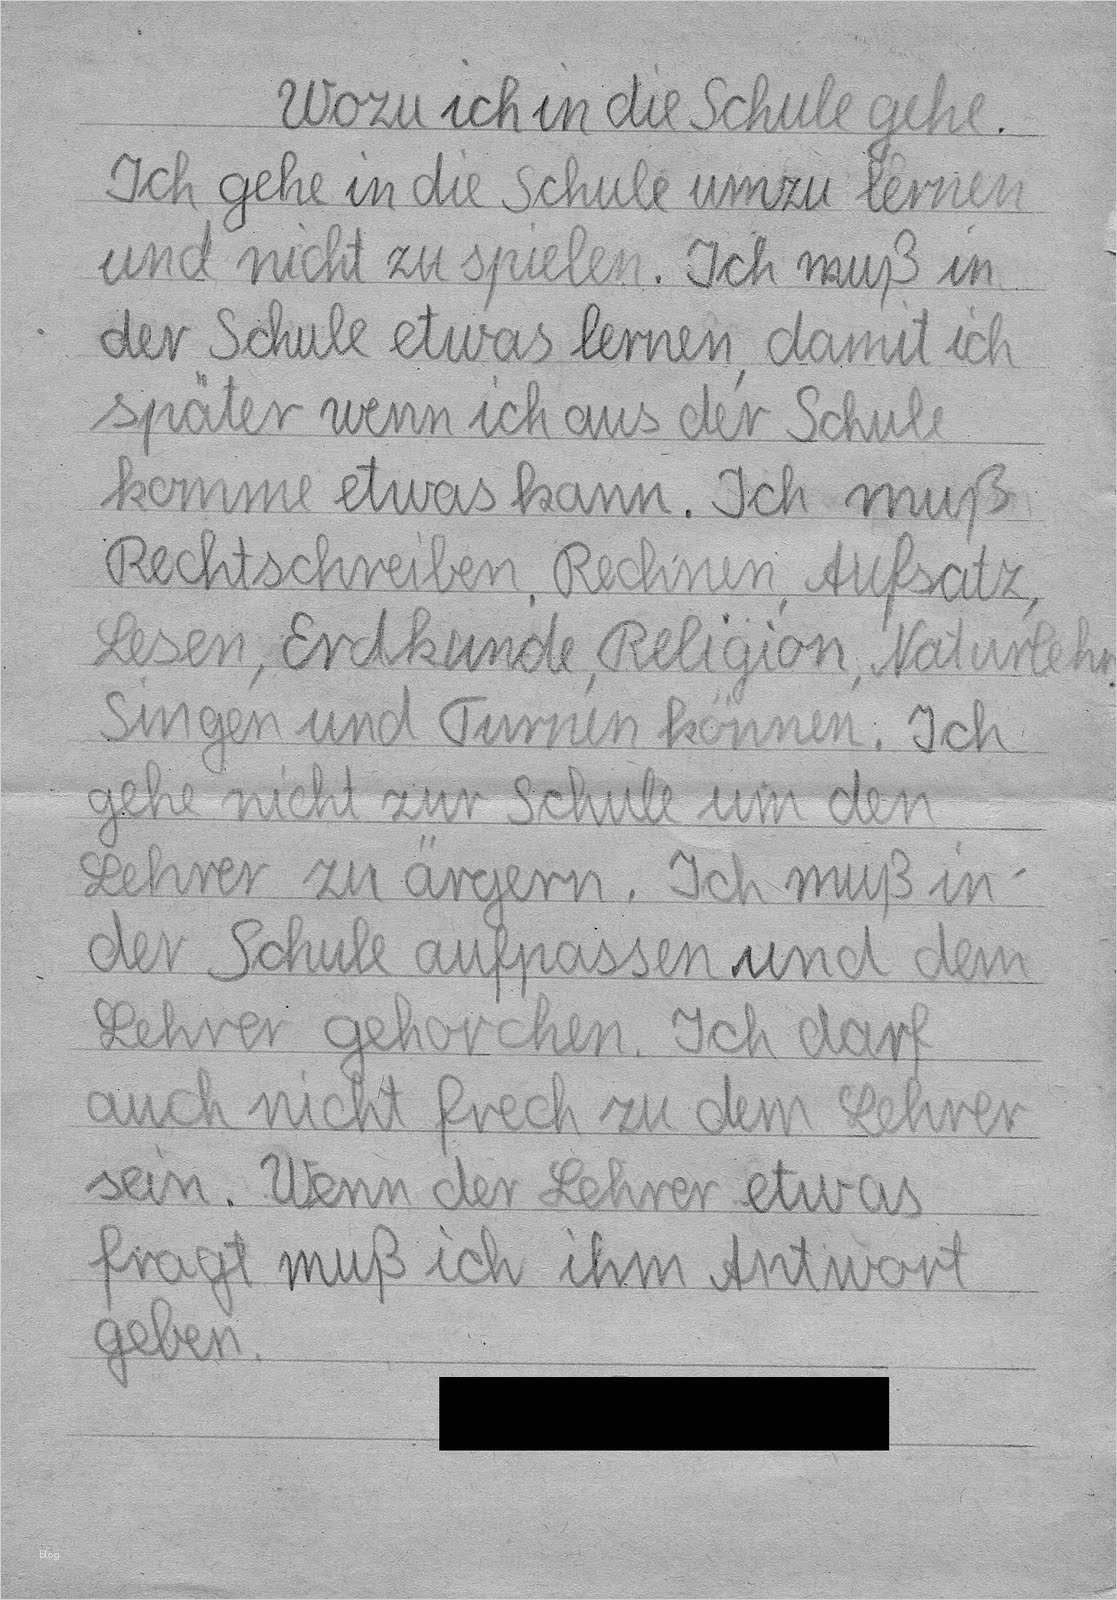 Wozu ich in die Schule gehe.
Ich gehe in die Schule umzu lernen
und nicht zu spielen. Ich muß in
der Schule etwas lernen, damit ich
später wenn ich aus der Schule
komme etwas kann. Ich muß
Rechtschreiben, Rechnen, Aufsatz,
Lesen, Erdkunde, Religion, Naturlehr.
Singen und Turnen können. Ich
gehe nicht zur Schule um den
Lehrer zu ärgern. Ich muß in
der Schule aufpassen und dem
Lehrer gehorchen. Ich darf
auch nicht frech zu dem Lehrer
sein. Wenn der Lehrer etwas
fragt muß ich ihm Antwort
geben.
blog